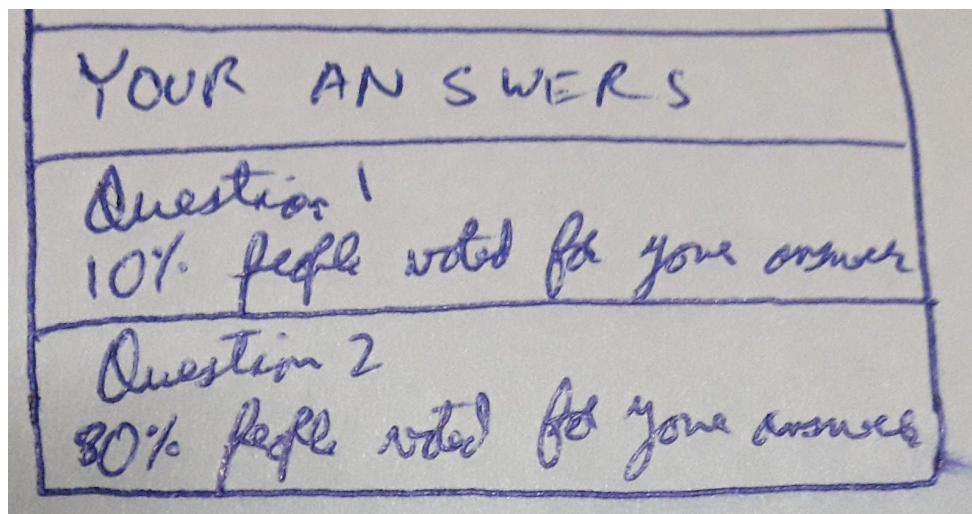 YOUR ANSWERS
Question 1
10% people voted for your answer
Question 2
80% people voted for your answer